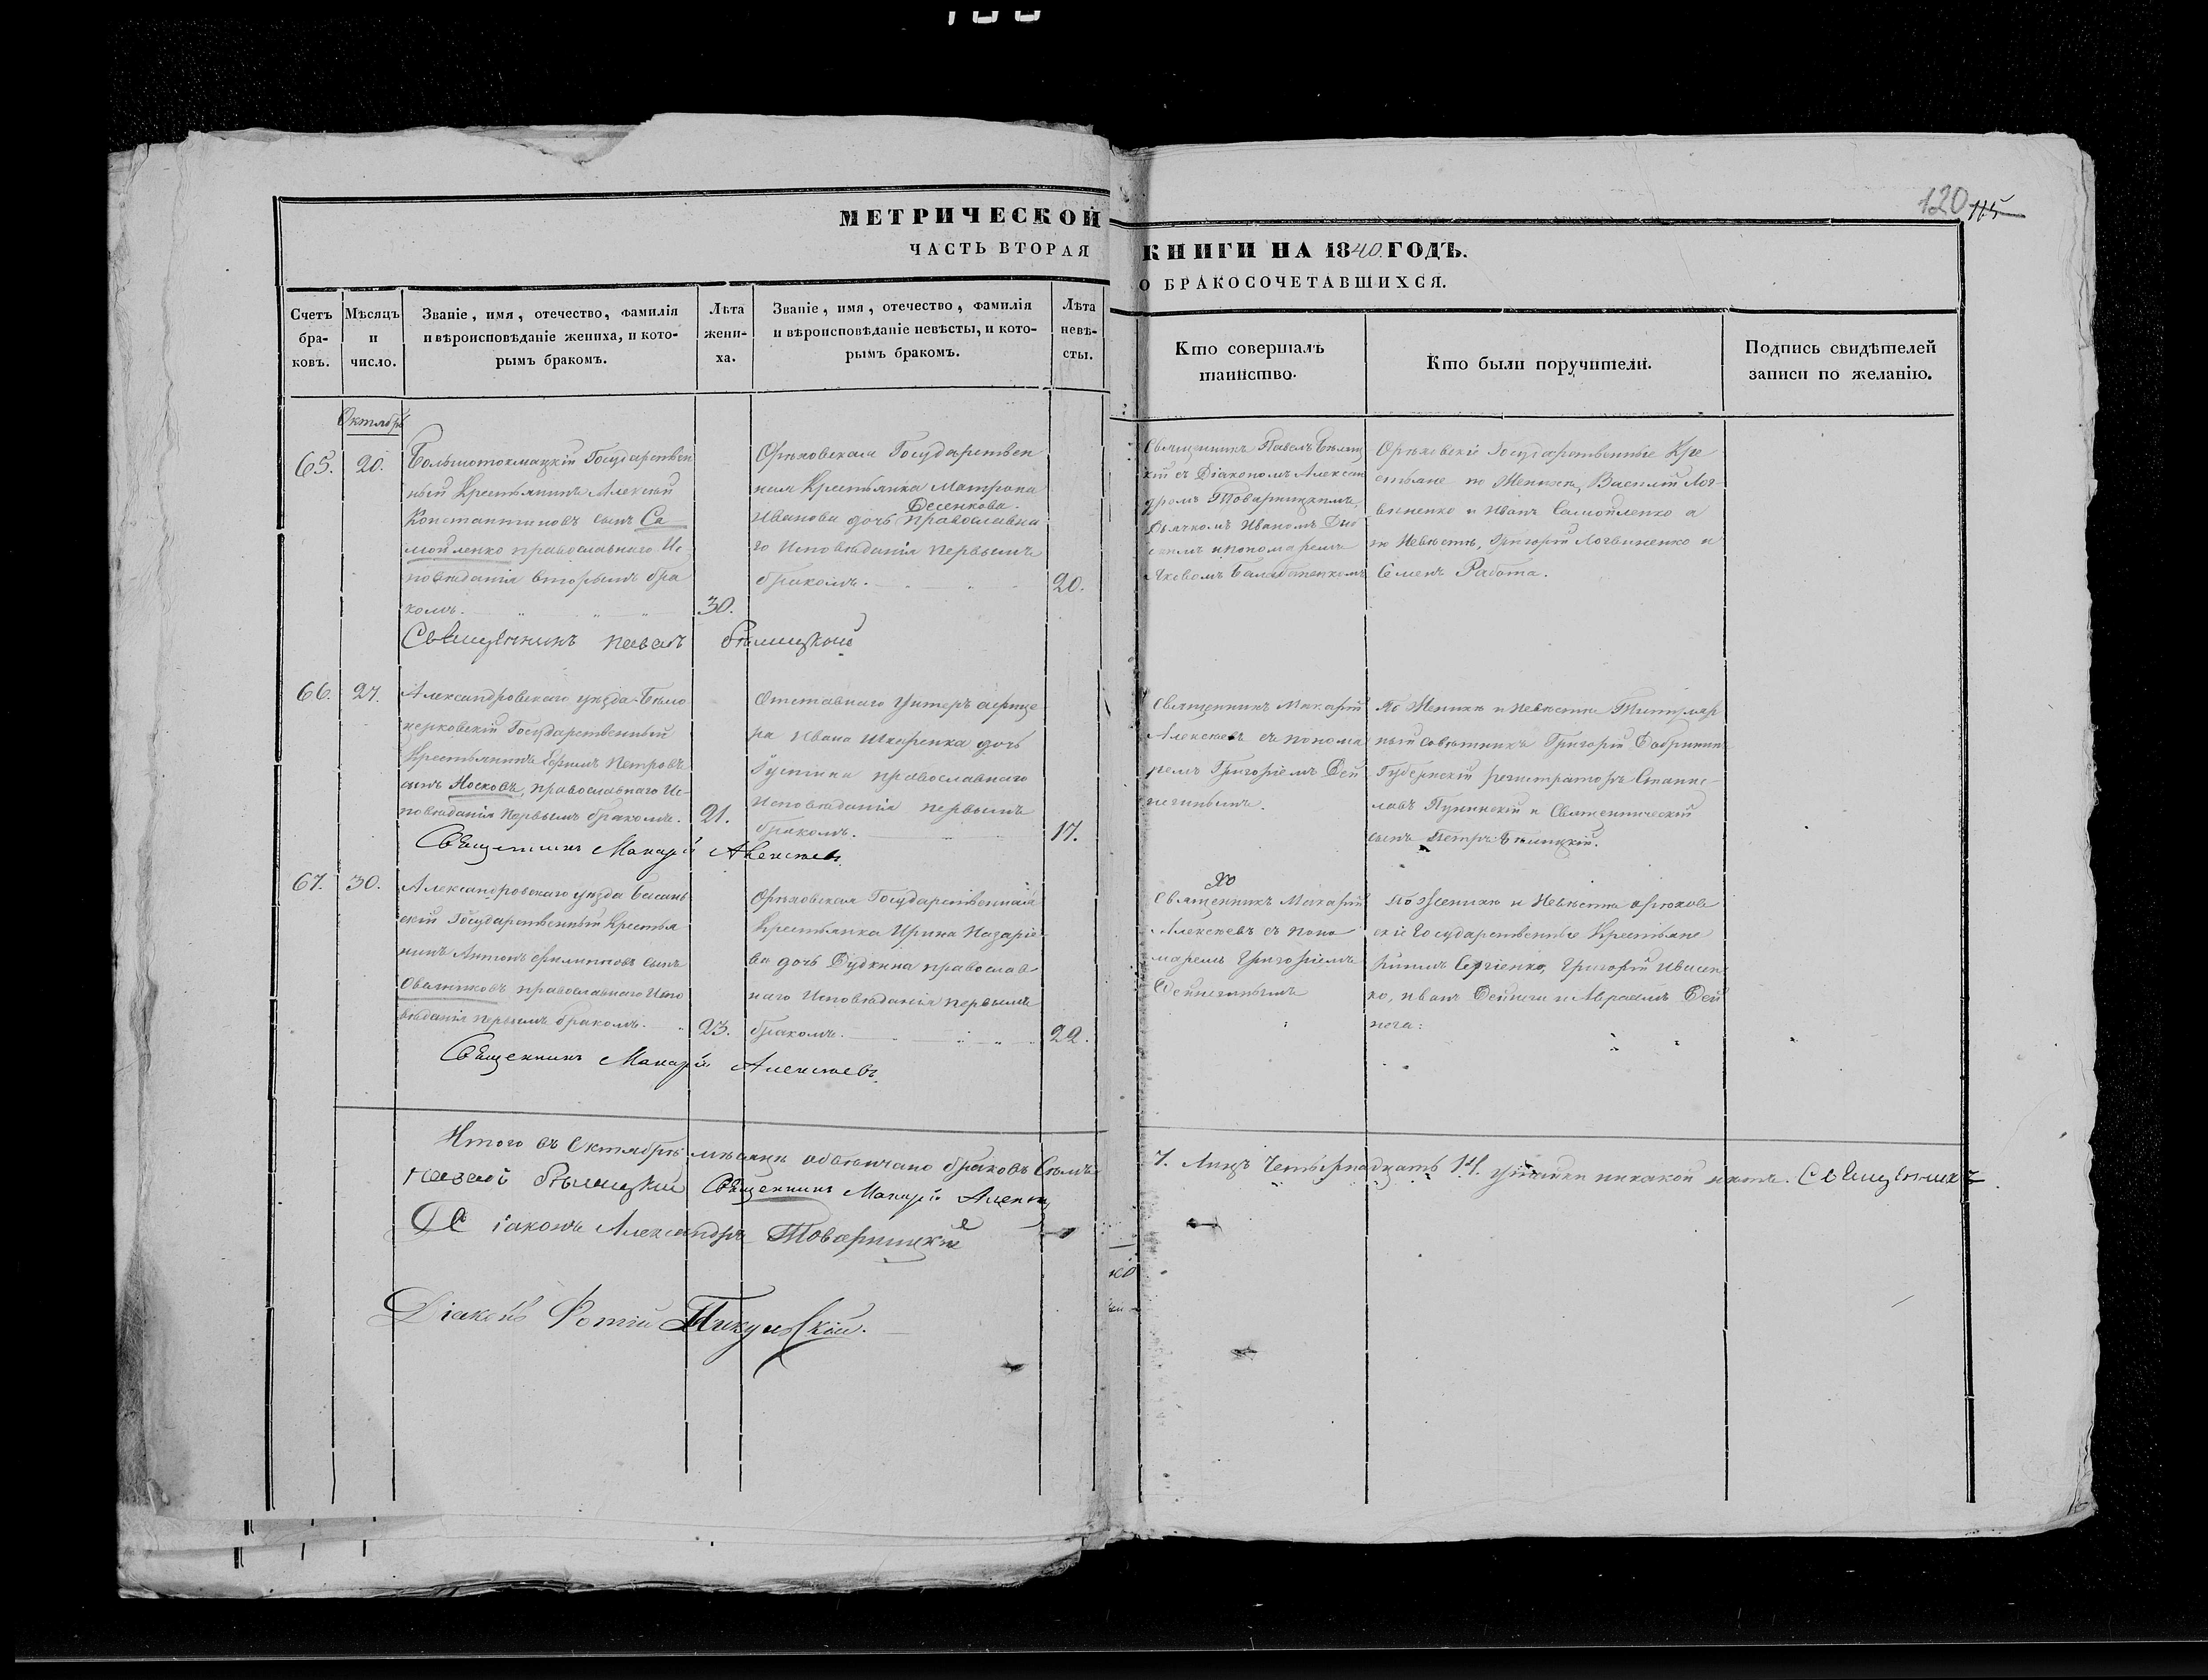 120 115
МЕТРИЧЕСКОЙ КНИГИ НА 1840 ГОДЪ.
ЧАСТЬ ВТОРАЯ О БРАКОСОЧЕТАВШИХСЯ.
Счетъ браковъ.
Мѣсяцъ и число.
Званіе, имя, отечество, фамилія
и вѣроисповѣданіе жениха, и кото-
рымъ бракомъ.
Лѣта
жени-
ха.
Званіе, имя, отечество, фамилія
и вѣроисповѣданіе невѣсты, и кото-
рымъ бракомъ.
Лѣта
невѣ-
сты.
Кто совершалъ
таинство.
Кто были поручители.
Подпись свидѣтелей
записи по желанію.
Октябрь
65. 20.
Большотокмацкій Государствен
ный Крестьянинъ Алексѣй
Константиновъ сынъ Са
мойленко православнаго Ис
повѣданія вторымъ бра
комъ.
30.
Орѣховская Государствен
ная Крестьянка Матрона
Иванова дочь Десенкова православна
го Исповѣданія первымъ
бракомъ.
20.
Священникъ Павелъ Бѣлиц
кій съ Діакономъ Алексан
дромъ Товарницкимъ,
Дьячкомъ Иваномъ
и пономаремъ
Яковомъ
Орѣховскіи Государственные Кре
стьяне по Женихѣ, Василій Лог
виненко и Иванъ Самойленко а
по Невѣстѣ, Григорій Логвиненко и
Семенъ Работа.
Священникъ Павелъ Бѣлицкій
66. 27.
Александровскаго уѣзда Бѣло
церковскій Государственный
Крестьянинъ Ефимъ Петровъ
сынъ Носковъ, православнаго Ис
повѣданія первымъ бракомъ.
21.
Отставнаго Унтеръ офице
ра Ивана Шкаренка дочь
Іустина православнаго
Исповѣданія первымъ
бракомъ.
17.
Священникъ Макарій
Алексѣевъ съ понома
ремъ Григоріемъ Дей
негинымъ.
По Женихѣ и Невѣстѣ Титуляр
ный совѣтникъ Григорій Добрининъ
Губернскій регистраторъ Станис
лавъ Пунинскій и Священническій
сынъ Петръ Бѣлицкій.
Священникъ Макарій Алексѣевъ
67. 30.
Александровскаго уѣзда Басань
скій Государственный Крестья
нинъ Антонъ Филиповъ сынъ
православнаго Испо
вѣданія первымъ бракомъ.
23.
Орѣховская Государственная
Крестьянка Ирина Назаріе
ва дочь Дудкина православ
наго Исповѣданія первымъ
бракомъ.
22.
Священникъ Макарій
Алексѣевъ съ поно
маремъ Григоріемъ
Дейнегинымъ
По Женихѣ и Невѣстѣ Орѣхов
скіе Государственные Крестьяне
Сергіенко, Григорій Ивасен
ко, Иванъ Дейнега и Авраамъ Дей
нега:
Священникъ Макарій Алексѣевъ
Итого въ Октябрѣ мѣсяцѣ обвѣнчано браковъ Семь 7. Лицъ Четырнадцать 14. никакой нѣтъ. Священникъ
Павелъ Бѣлицкій Священникъ Макарій Алексѣ
Діаконъ Александръ Товарницкій
Діаконъ Фотій Пикульскій.